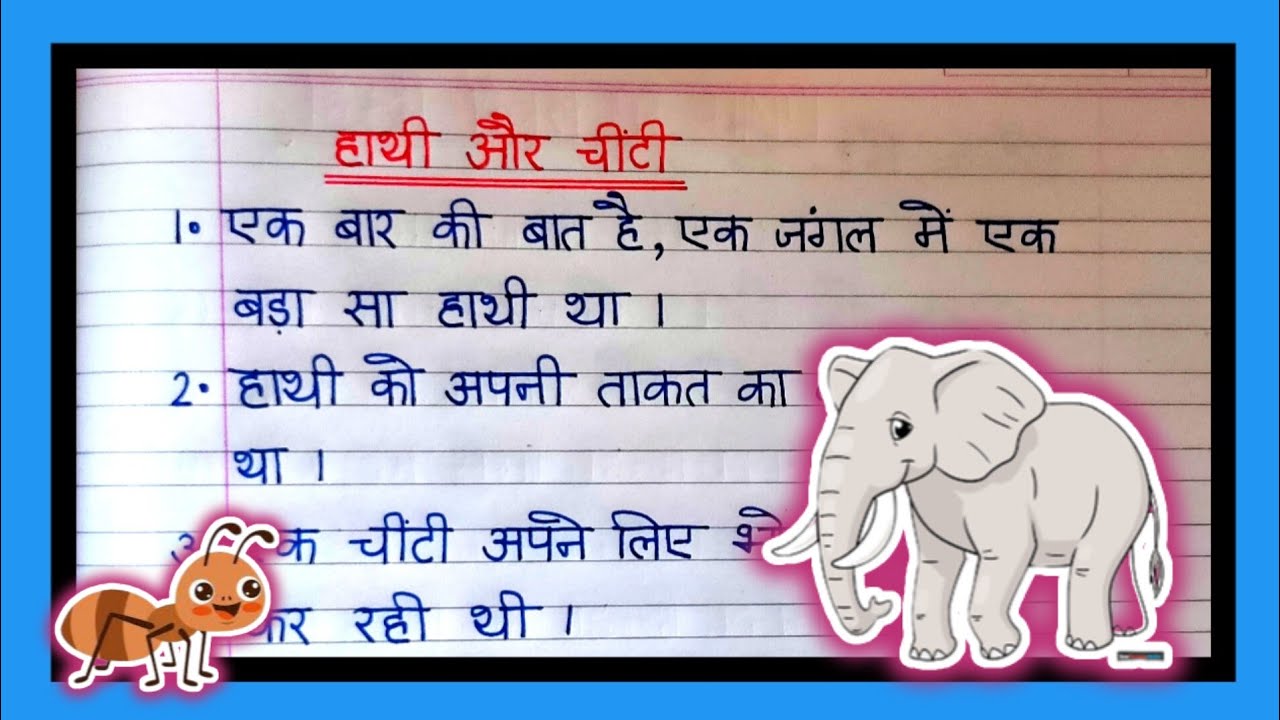 हाथी और चींटी
1. एक बार की बात है, एक जंगल में एक
बड़ा सा हाथी था ।
2. हाथी को अपनी ताकत का
था ।
3. चींटी अपने लिए
कर रही थी ।